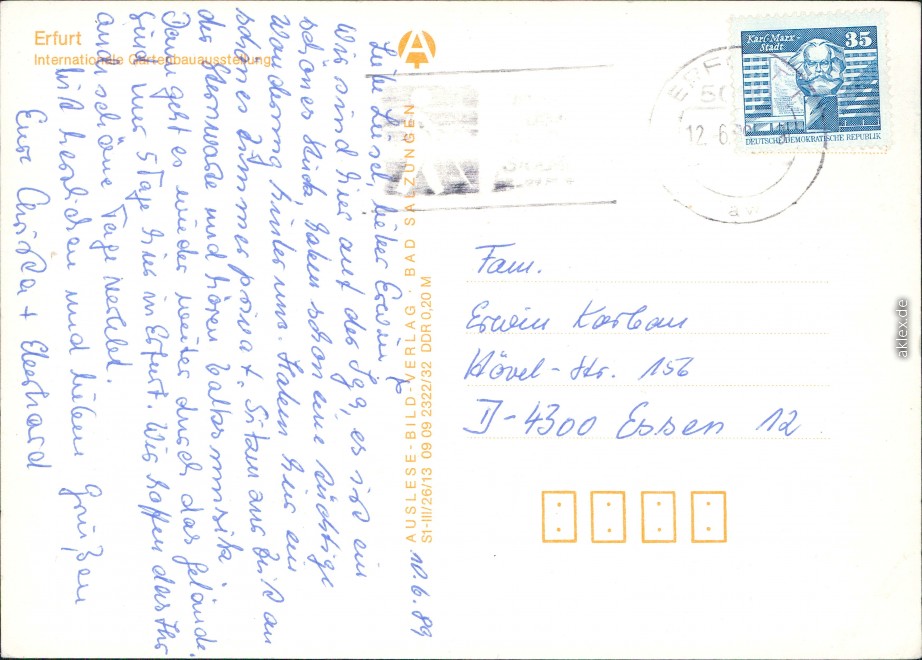 Erfurt
Internationale Gartenbauausstellung
10.6.89
Liebe Liesel, lieber Erwin,
Wir sind hier auf der Iga, es ist ein
schönes Stück, haben schon eine tüchtige
Wanderung hinter uns. Haben hier ein
schönes Zimmer privat. Sitzen zur Zeit an
der Sternwarte und hören Balksmusik
Dann geht es wieder weiter durch das Gelände.
Sind nur 5 Tage hier in Erfurt. Wir hoffen das Ihr
auch schöne Tage verlebt.
Mit herzlichen und lieben Grüßen
Eure Christa + Eberhard
AUSLESE-BILD-VERLAG · BAD SALZUNGEN
S1-III/26/13 09 09 2322/32 DDR 0,20 M
Karl-Marx-
Stadt
35
DEUTSCHE DEMOKRATISCHE REPUBLIK
ERF
50
12.6.
Fam.
Erwin Korban
Hövel-Str. 156
D-4300 Essen 12
aklex.de